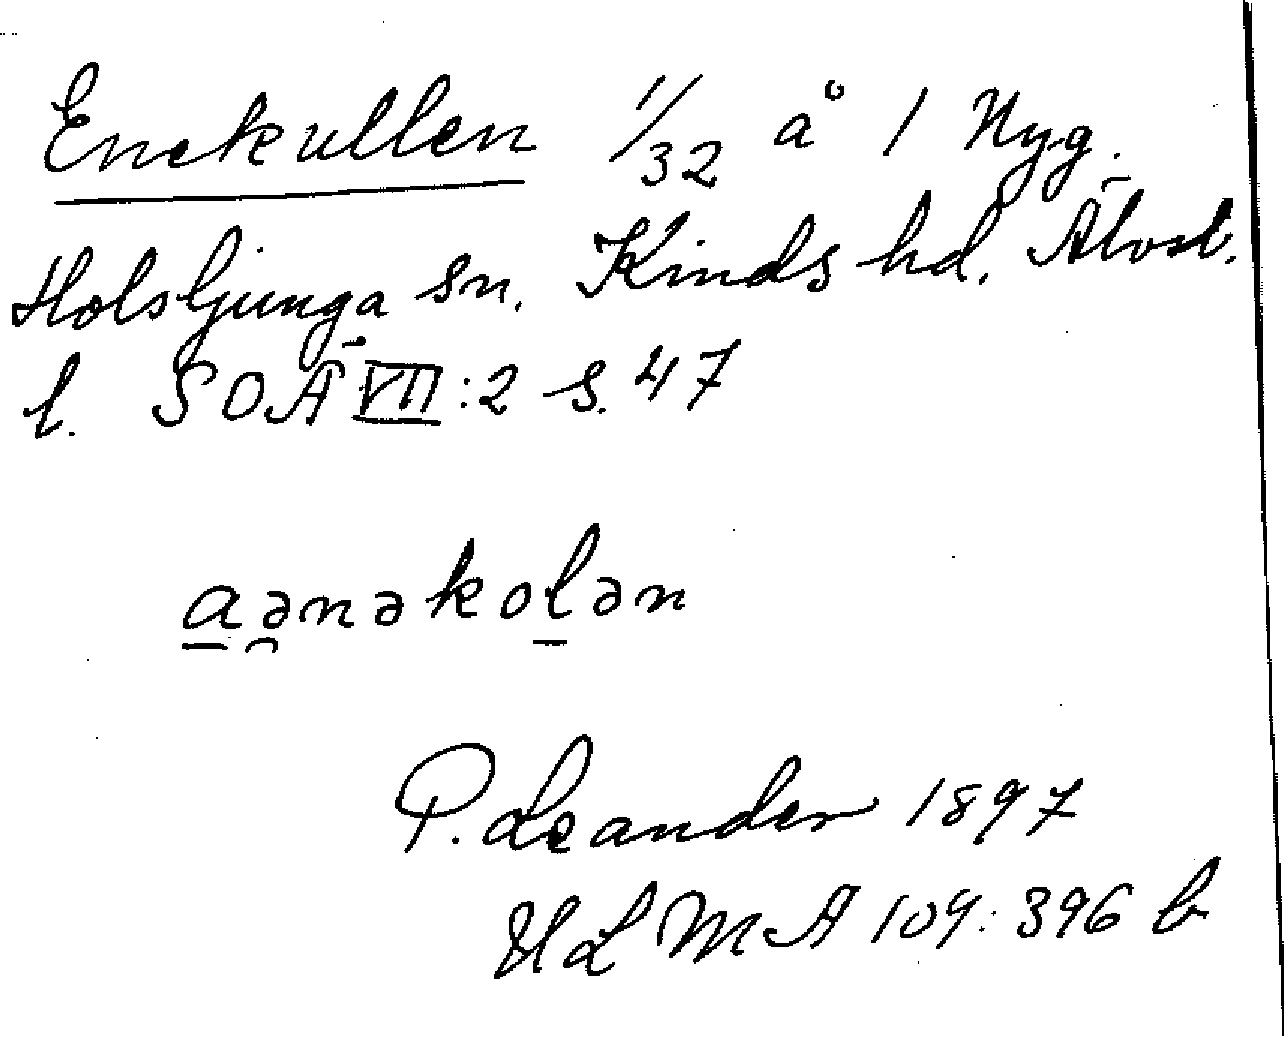 Enekullen 1/32 å 1 Nyg.
Holsljunga sn. Kinds hd. Älvsb.
l. SOÄ VII:2 s. 47
a̱ə̯nəkoḻən
P. Leander 1897
ULMA 109:396 b